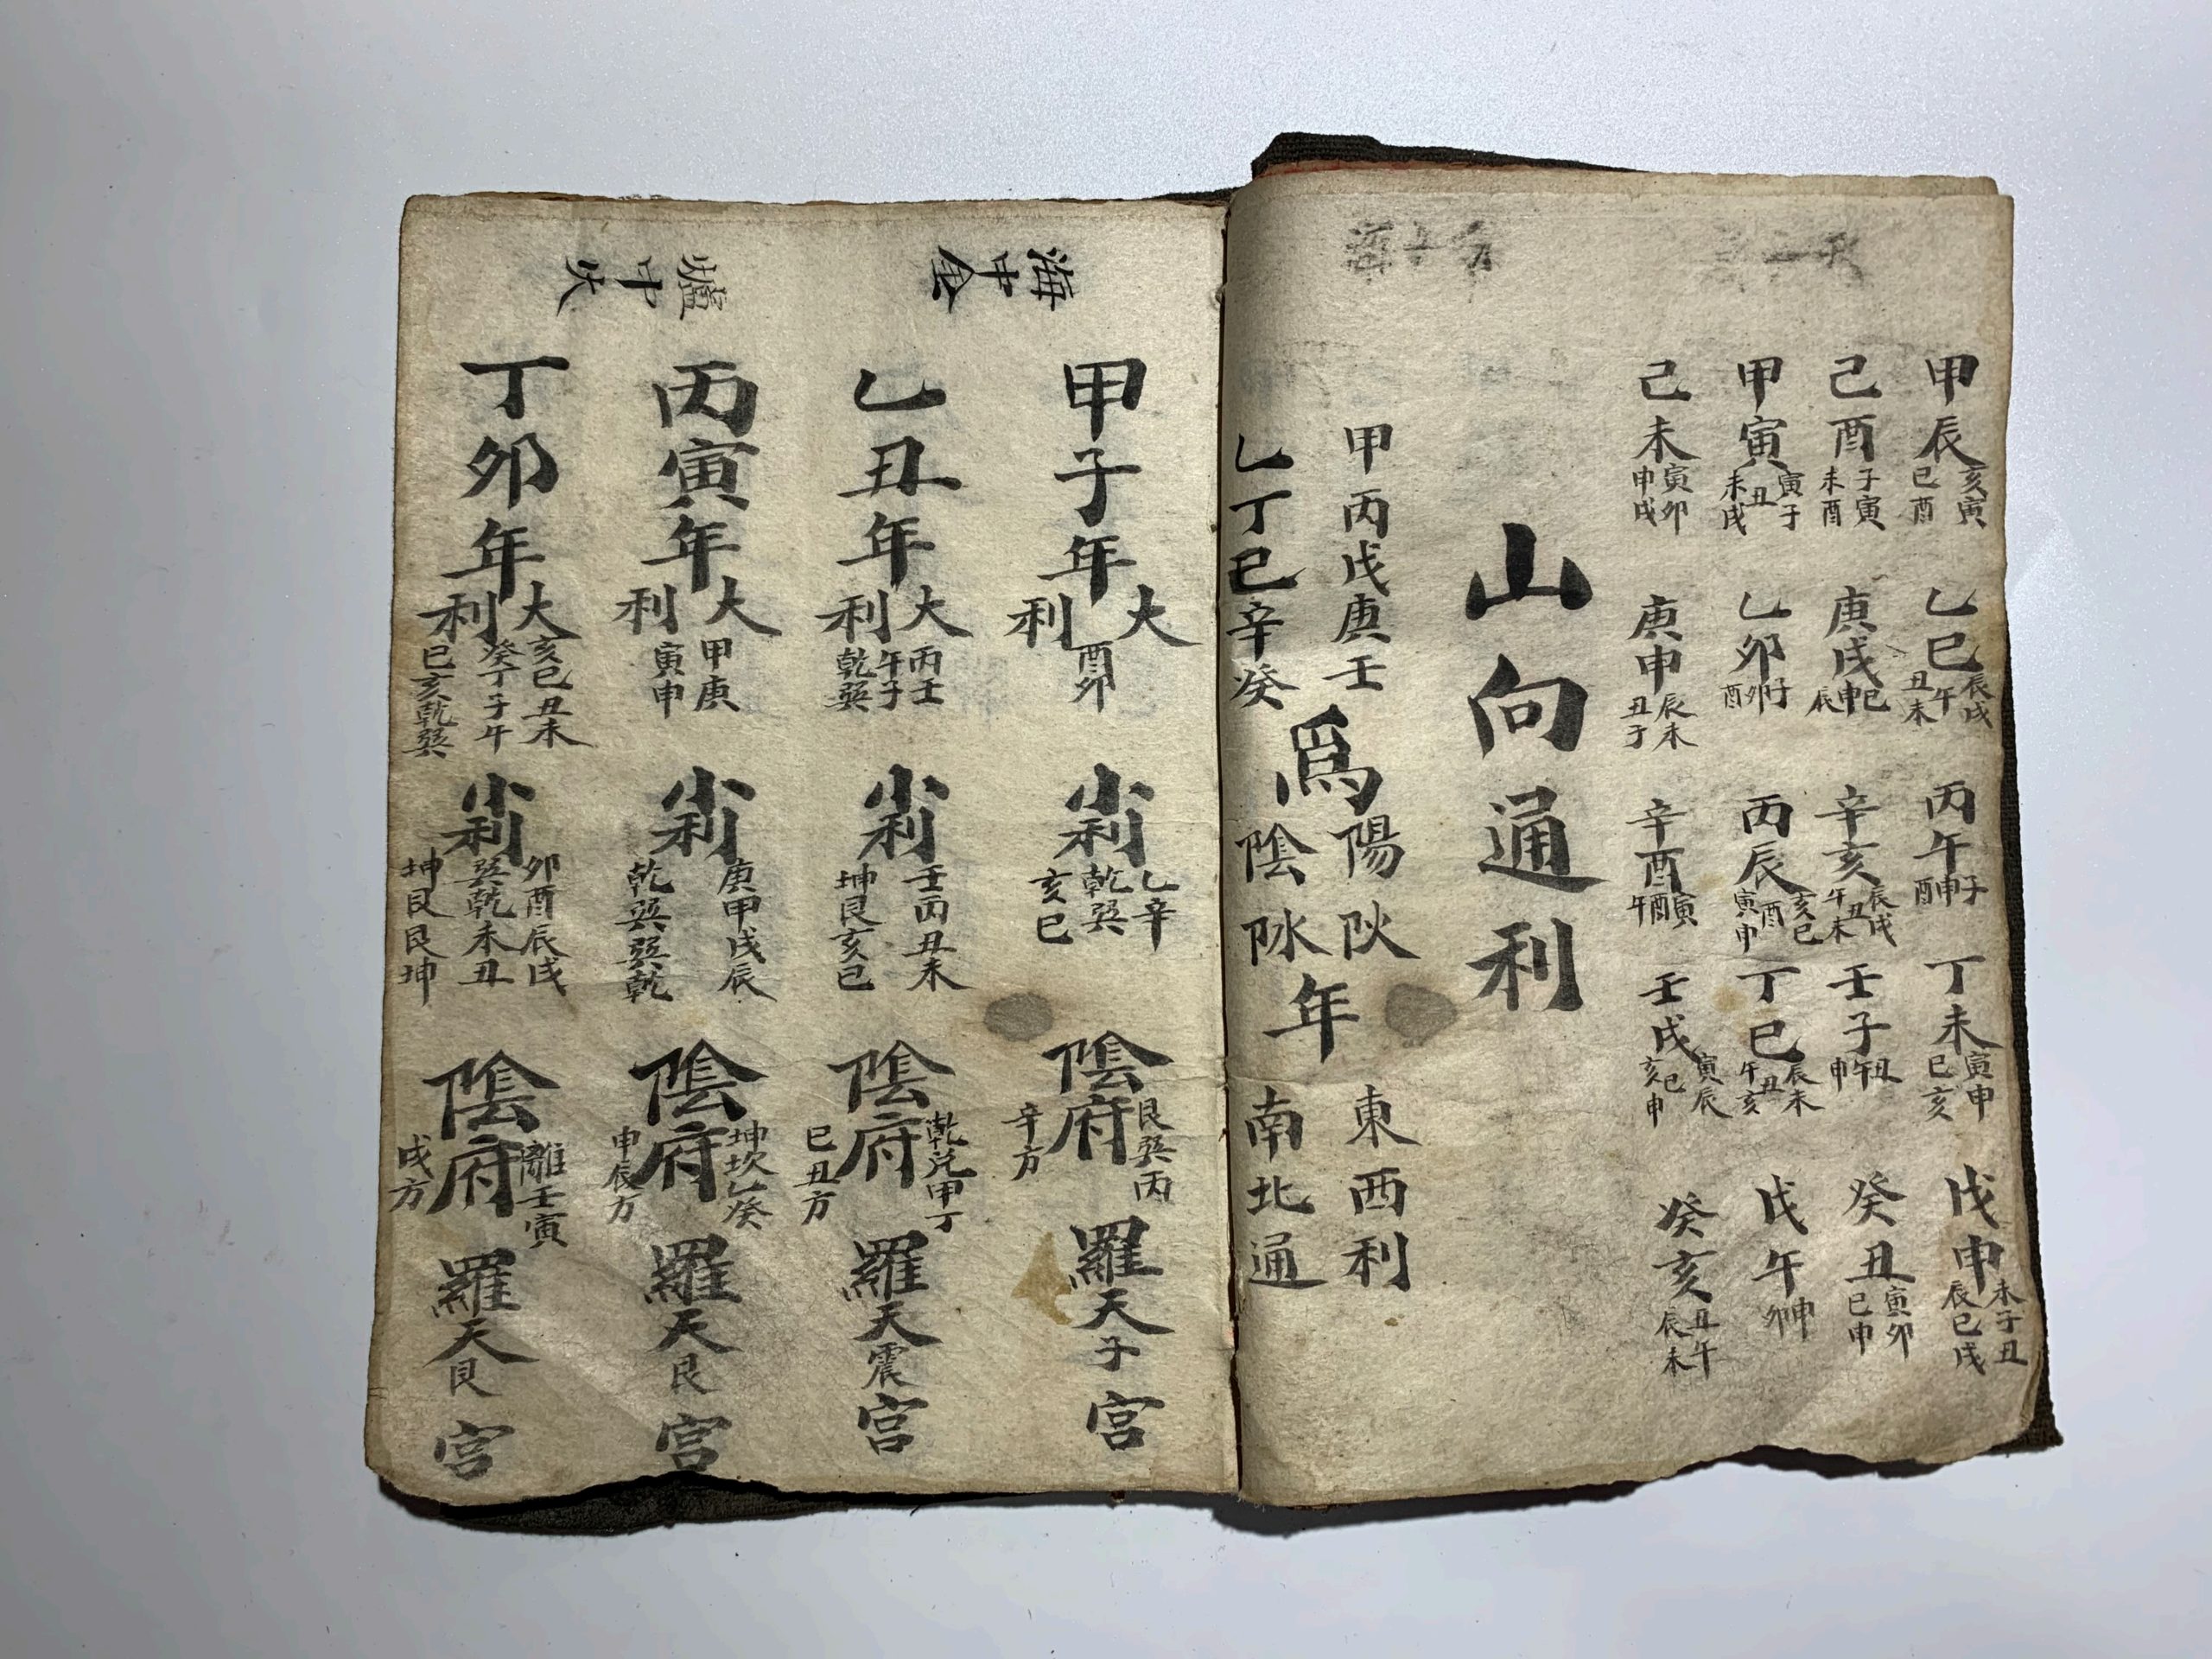 甲辰 亥寅 巳酉
乙巳 辰戌 午 丑未
丙午 子申酉
丁未 寅申 巳亥
戊申 未子丑 辰巳戌
己酉 子寅 未酉
庚戌 巳申辰
辛亥 辰戌 丑 午未
壬子 丑午申
癸丑 寅卯 巳申
甲寅 寅子 丑 未戌
乙卯 子卯酉
丙辰 亥巳 酉 寅申
丁巳 辰未 丑 午亥
戊午 申卯
己未 寅卯 申戌
庚申 辰未 丑子
辛酉 寅酉午
壬戌 寅辰 巳申 亥
癸亥 丑午 辰未
山向通利
甲丙戊庚壬
乙丁巳辛癸
爲
陽
陰
年
東西利
南北通
海中金
甲子年 大利 酉卯
小利 乙辛 乾巽 亥巳
陰府 艮巽丙 辛方
羅天子宮
乙丑年 大利 丙壬 午子 乾巽
小利 壬丙丑未 坤艮亥巳
陰府 乾兌甲丁 巳丑方
羅天震宮
爐中火
丙寅年 大利 甲庚 寅申
小利 庚甲戌辰 乾巽巽乾
陰府 坤坎乙癸 申辰方
羅天艮宮
丁卯年 大利 亥巳丑未 癸丁子午 巳亥乾巽
小利 卯酉辰戌 巽乾未丑 坤艮艮坤
陰府 離壬寅 戌方
羅天艮宮